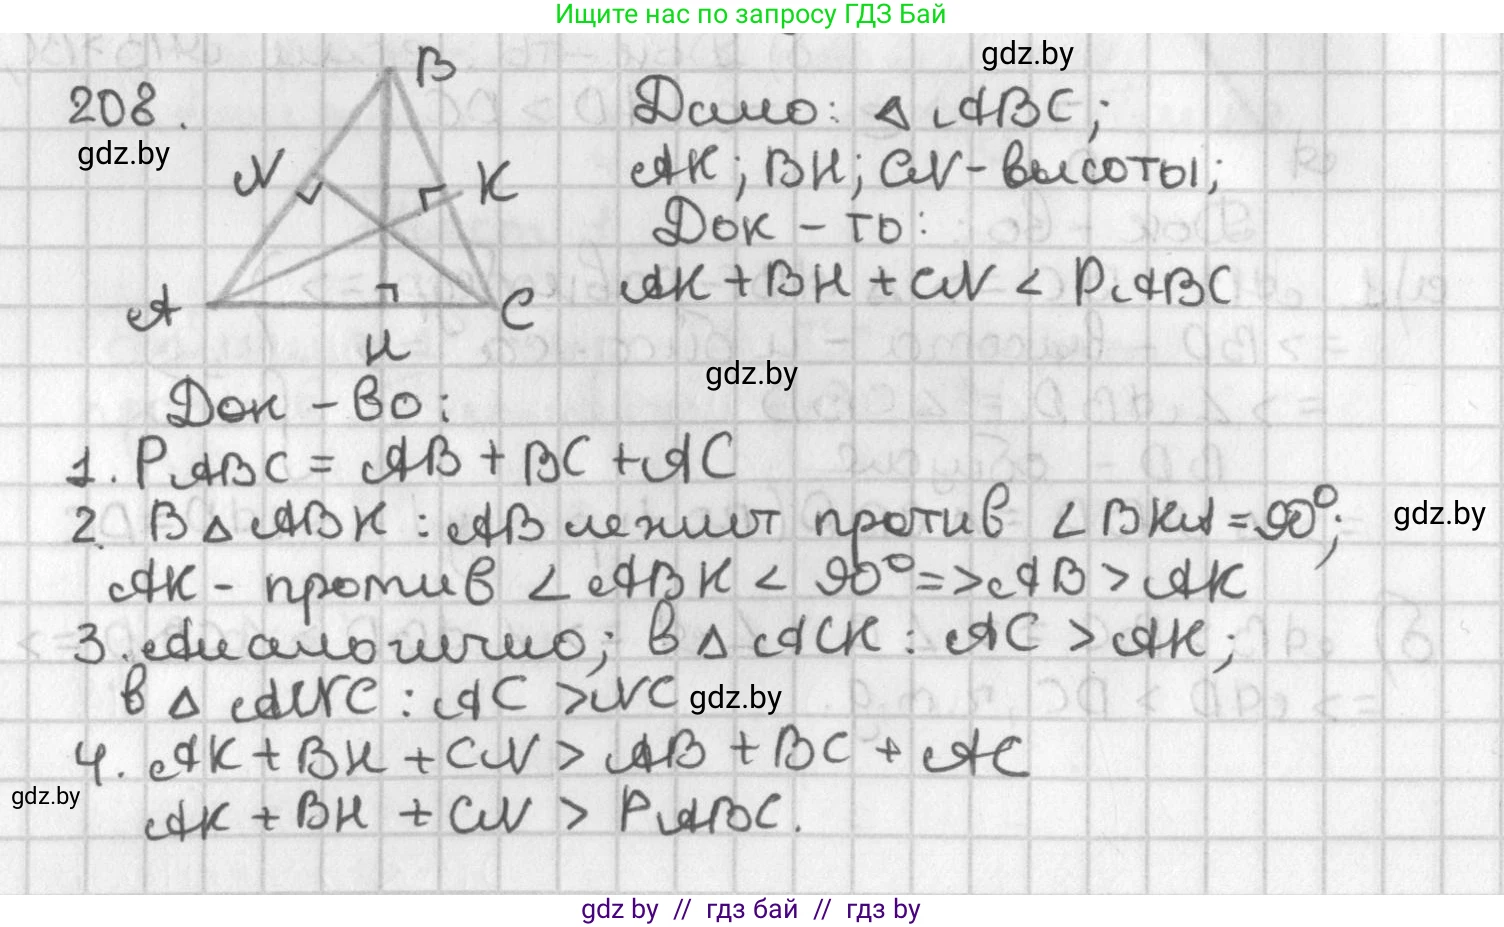 Ищите нас по запросу ГДЗ Бай
gdz.by
208.
gdz.by
B
N
K
A
C
H
Дано: △ ABC;
AK; BH; CN - высоты;
Док - ть:
AK + BH + CN < PABC
gdz.by
Док - во:
1. PABC = AB + BC + AC
2. В △ ABK : AB лежит против ∠ BKA = 90°;
gdz.by
AK - против ∠ ABK < 90° => AB > AK
3. Аналогично; в △ ACK : AC > AK;
в △ ANC : AC > NC
gdz.by
4. AK + BH + CN > AB + BC + AC
gdz.by
AK + BH + CN > PABC.
gdz by // гдз бай // гдз by